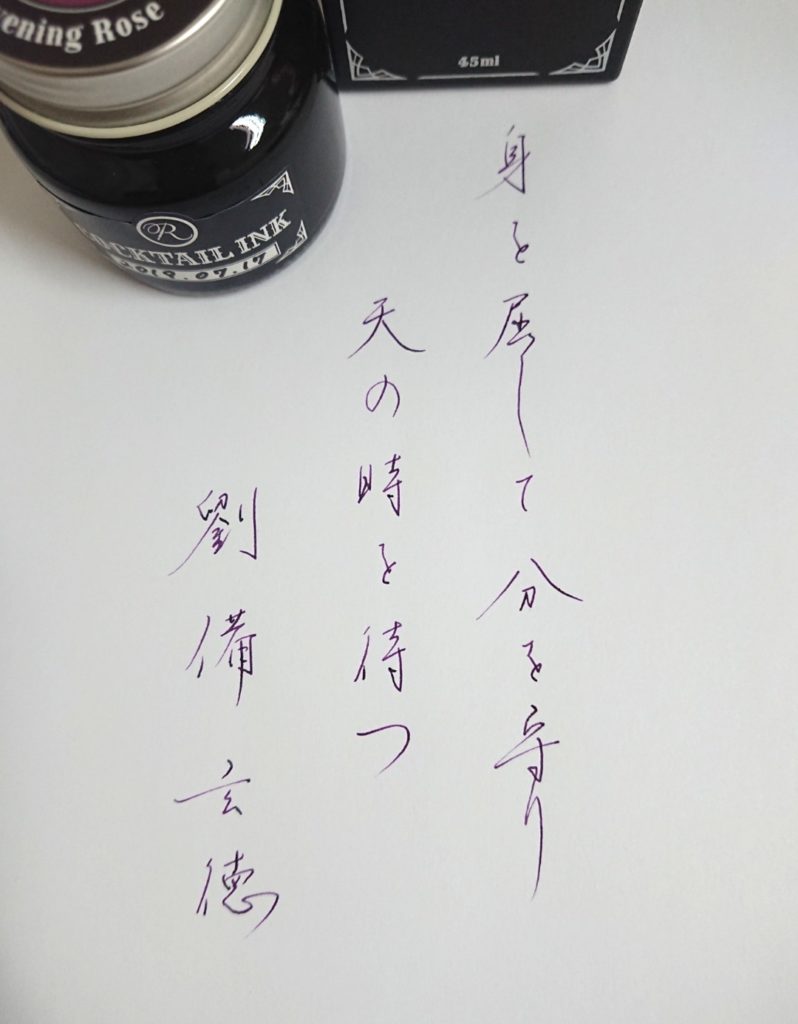 ening Rose
COCKTAIL INK
2019.07.17
45ml
身を屈して分を守り
天の時を待つ
劉備玄徳